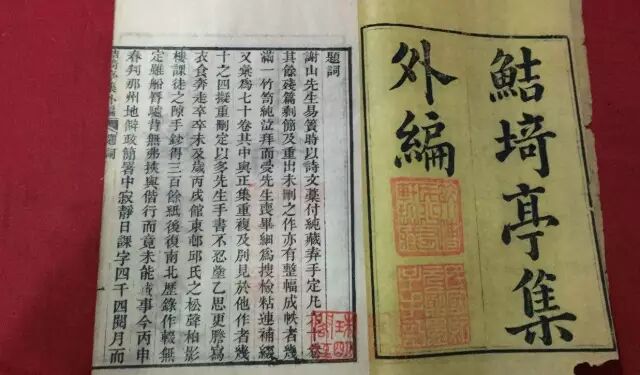 鮚埼亭集
外編
題詞
謝山先生易簀時以詩文藁付純藏弆手定凡十卷
其餘殘篇剩簡及重出未刪之作亦有整幅成帙者幾
滿一竹笥純泣拜而受先生喪畢細為搜檢粘連補綴
又彙為七十卷其中與正集重複及別見於他作者幾
十之四擬重刪定以多先生手書不忍塗乙思更謄寫
衣食奔走卒卒未及歲丙戌館東鄣邱氏之松聲柏影
樓課徒之隙手鈔得三百餘紙後復南北歷錄作輟無
定雖船脣驢背無弗挾與偕行而竟未能蕆事今丙申
春判那州地僻政簡署中寂靜日課字四千四閱月而